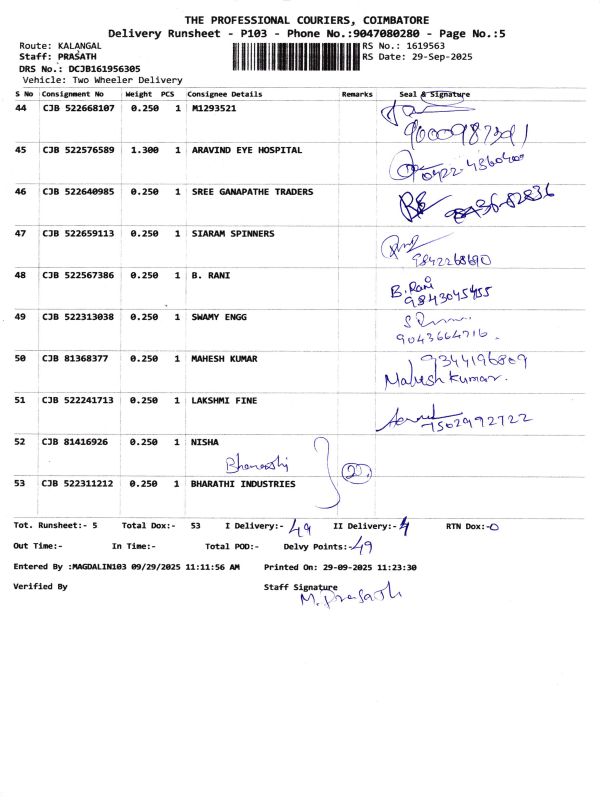 THE PROFESSIONAL COURIERS, COIMBATORE
Delivery Runsheet - P103 - Phone No.:9047080280 - Page No.:5
Route: KALANGAL RS No.: 1619563
Staff: PRASATH RS Date: 29-Sep-2025
DRS No.: DCJB161956305
Vehicle: Two Wheeler Delivery
S No Consignment No Weight PCS Consignee Details Remarks Seal & Signature
44 CJB 522668107 0.250 1 M1293521
45 CJB 522576589 1.300 1 ARAVIND EYE HOSPITAL
0422-4360400
46 CJB 522640985 0.250 1 SREE GANAPATHE TRADERS
47 CJB 522659113 0.250 1 SIARAM SPINNERS
9842268690
48 CJB 522567386 0.250 1 B. RANI
B. Rani
9843045455
49 CJB 522313038 0.250 1 SWAMY ENGG
9043664716.
50 CJB 81368377 0.250 1 MAHESH KUMAR
9344196809
Mahesh Kumar.
51 CJB 522241713 0.250 1 LAKSHMI FINE
7502992722
52 CJB 81416926 0.250 1 NISHA
53 CJB 522311212 0.250 1 BHARATHI INDUSTRIES
Tot. Runsheet:- 5 Total Dox:- 53 I Delivery:- 49 II Delivery:- 4 RTN Dox:-0
Out Time:- In Time:- Total POD:- Delvy Points:-49
Entered By :MAGDALIN103 09/29/2025 11:11:56 AM Printed On: 29-09-2025 11:23:30
Verified By Staff Signature
M. Prasath